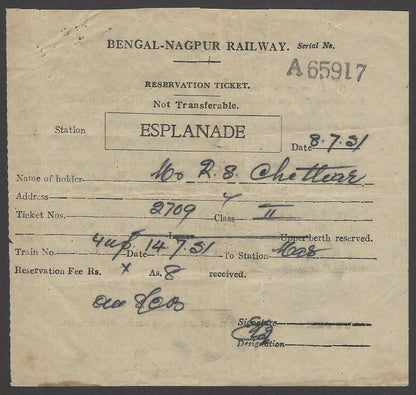 BENGAL-NAGPUR RAILWAY. Serial No.
A 65917
RESERVATION TICKET.
Not Transferable.
Station ESPLANADE Date 8.7.51
Name of holder Chettiar
Address
Ticket Nos. 2709 Class II
Lower Upper berth reserved.
Train No. 4 up Date 14.7.51 To Station
Reservation Fee Rs. x As. 8 received.
Signature
Designation